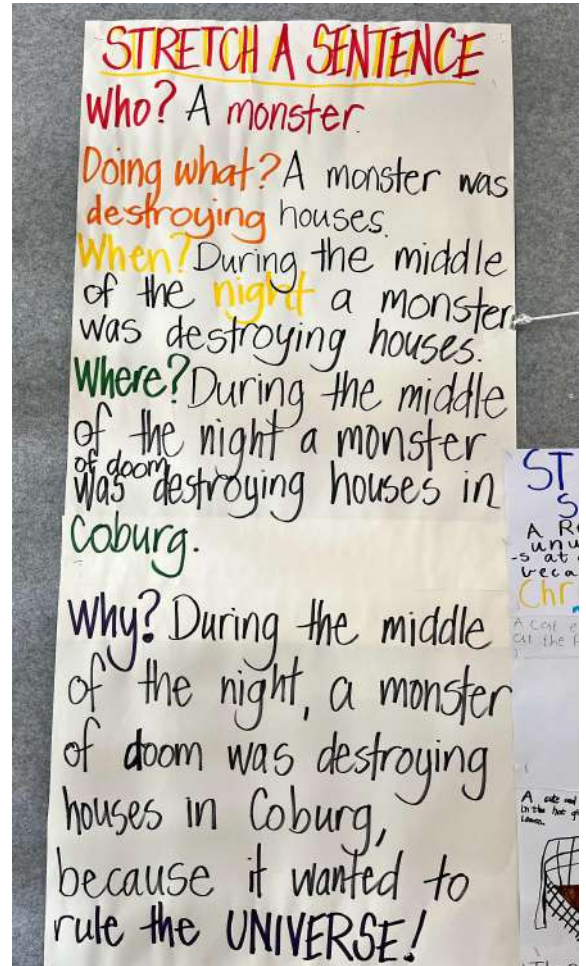 STRETCH A SENTENCE
Who? A monster.
Doing what? A monster was
destroying houses.
When? During the middle
of the night a monster
was destroying houses.
Where? During the middle
of the night a monster
of doom
was destroying houses in
Coburg.
Why? During the middle
of the night, a monster
of doom was destroying
houses in Coburg,
because it wanted to
rule the UNIVERSE!
ST
S
A R
unu
-s at
beca
Chr
A cat e
at the
A cute and
in the hot